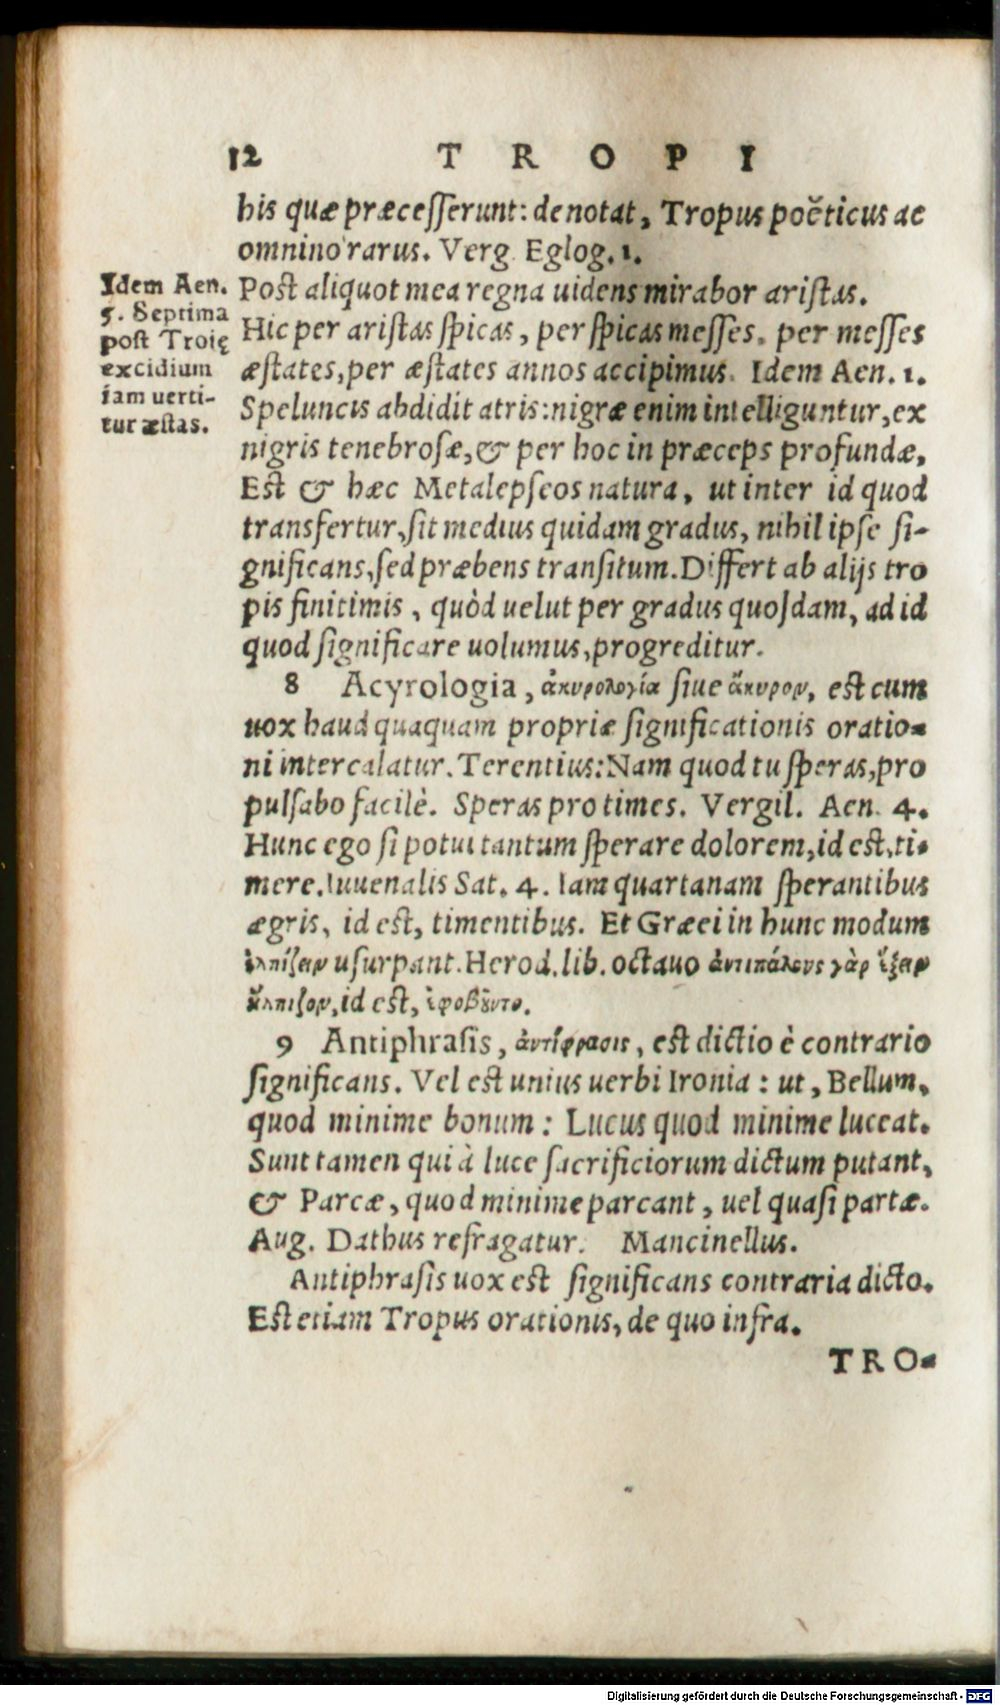 12 TROPI
his quæ præcesserunt: denotat, Tropus poëticus ac
omnino rarus. Verg. Eglog. 1.
Post aliquot mea regna uidens mirabor aristas.
Hic per aristas spicas, per spicas messes, per messes
æstates, per æstates annos accipimus. Idem Aen. 1.
Speluncis abdidit atris: nigræ enim intelliguntur, ex
nigris tenebrosæ, & per hoc in præceps profundæ,
Est & hæc Metalepseos natura, ut inter id quod
transfertur, sit medius quidam gradus, nihil ipse si-
gnificans, sed præbens transitum. Differt ab alijs tro
pis finitimis, quòd uelut per gradus quosdam, ad id
quod significare uolumus, progreditur.
Idem Aen.
5. Septima
post Troię
excidium
iam uerti-
tur æstas.
8 Acyrologia, ἀκυρολογία siue ἄκυρον, est cum
uox haud quaquam propriæ significationis oratio-
ni intercalatur. Terentius: Nam quod tu speras, pro
pulsabo facilè. Speras pro times. Vergil. Aen. 4.
Hunc ego si potui tantum sperare dolorem, id est, ti-
mere. Iuuenalis Sat. 4. Iam quartanam sperantibus
ægris, id est, timentibus. Et Græci in hunc modum
ἐλπίζειν usurpant. Herod. lib. octauo ἀντιπάλους γὰρ ἥξειν
ἤλπιζον, id est, ἐφοβοῦντο.
9 Antiphrasis, ἀντίφρασις, est dictio è contrario
significans. Vel est unius uerbi Ironia: ut, Bellum,
quod minime bonum: Lucus quod minime luceat.
Sunt tamen qui à luce sacrificiorum dictum putant,
& Parcæ, quod minime parcant, uel quasi partæ.
Aug. Dathus refragatur. Mancinellus.
Antiphrasis uox est significans contraria dicto.
Est etiam Tropus orationis, de quo infra.
TRO-
Digitalisierung gefördert durch die Deutsche Forschungsgemeinschaft - DFG